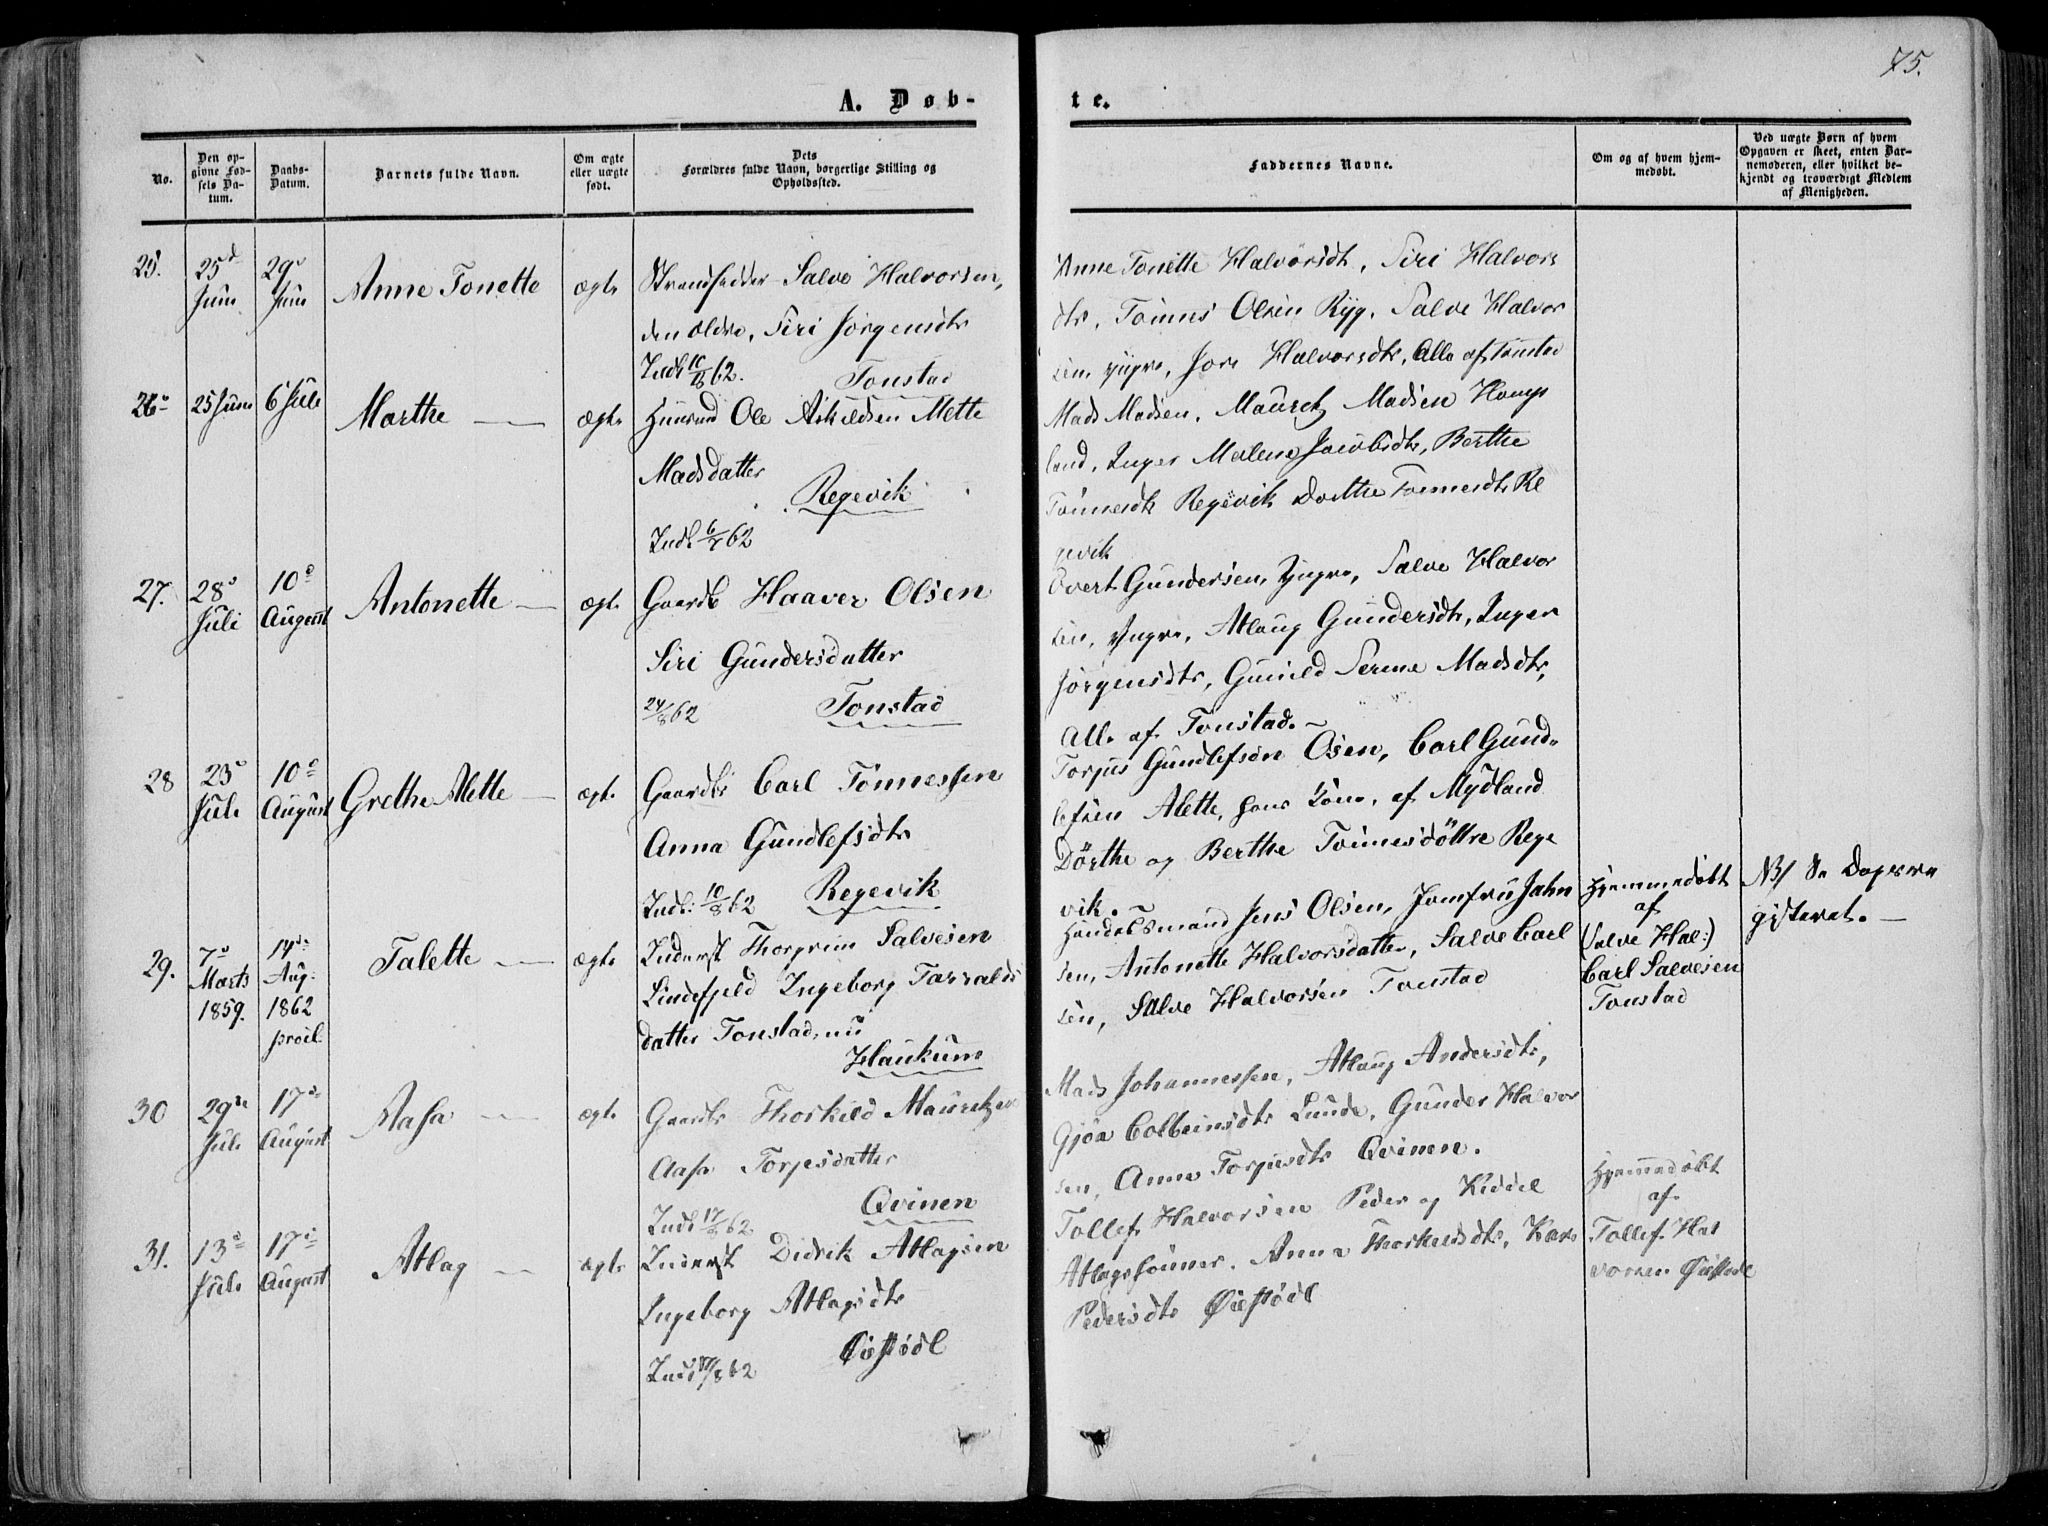 75.
A. Døb-
te.
No.
Den op-
givne Fød-
sels Da-
tum.
Daabs-
Datum.
Barnets fulde Navn.
Om ægte
eller uægte
født.
Dets
Forældres fulde Navn, borgerlige Stilling og
Opholdssted.
Faddernes Navne.
Om og af hvem hjem-
medøbt.
Ved uægte Børn af hvem
Opgaven er skeet, enten Bar-
nemoderen, eller hvilket be-
kjendt og troværdigt Medlem
af Menigheden.
25.
25d
Juni
29
Juni
Anne Tonette
ægte
Strandsidder Salve Halvorsen,
den ældre, Siri Jørgensdtr
Indl 10/8 62. Tonstad
Anne Tonette Halvorsdt, Siri Halvors
dtr, Tønnes Olsen Ryg, Salve Halvor
sen, yngre, Halvorsdtr, Alle af Tonstad
26
25 Juni
6 Juli
Marthe —
ægte
Huusmd Ole Askildsen Mette
Madsdatter
Regevik
Indl 6/7 62
Mads Madsen, Mauretz Madsen Houg
land, Inger Malene Jacobsdtr, Berthe
Tønnesdtr Regevik Dorthe Tønnesdtr Re
gevik
27.
28
Juli
10
August
Antonette —
ægte
Gaardb Haaver Olsen
Siri Gundersdatter
24/8 62 Tonstad
Evert Gundersen, yngre, Salve Halvor
sen, yngre, Atlaug Gundersdtr, Inger
Jørgensdtr, Gunild Serine Madsdtr,
Alle af Tonstad.
28
23
Juli
10
August
Grethe Alette —
ægte
Gaardbr Carl Tønnessen
Anna Gundlefsdtr
Indl: 10/8 62 Regevik
Torjus Gundlefsøn Osen, Carl Gund-
lefsen Alette, hans Kone, af Mydland
Dorthe og Berthe Tønnesdøttre Rege
vik.
29.
7
Marts
1859.
14
Aug:
1862
Talette —
ægte
Inderst Thorgrim Salvesen
Lindefjeld Ingeborg Tarralds
datter Tonstad, nu
Haukum
Handelsmand Jens Olsen, Jomfru Jahn
sen, Antonette Halvorsdatter, Salve Carl
sen, Salve Halvorsen Tonstad
Hjemmedøbt
af
(Salve Hal:)
Carl Salvesen
Tonstad
NB/
gisteret. —
30
29
Juli
17
August
Aasa —
ægte
Gaardb Thorkild Mauretzen
Aasa Torjesdatter
Indl 17/8 62 Qvinen
Mads Johannessen, Atlaug Andersdtr,
Gjøa Colbeinsdtr Lunde, Gunder Halvor
sen, Anne Torjusdtr Qvinen.
31.
13
Juli
17
August
Atlag —
ægte
Inderst Didrik Atlagsen
Ingeborg Atlagsdtr
Indl 17/8 62 Øiestødl
Tollef Halvorsen Peder og Kiddel
Atlagssønner, Anna Thorkildsdtr, Kare
Pedersdtr Øiestødl
Hjemmedøbt
af
Tollef Hal
vorsen Øiestødl